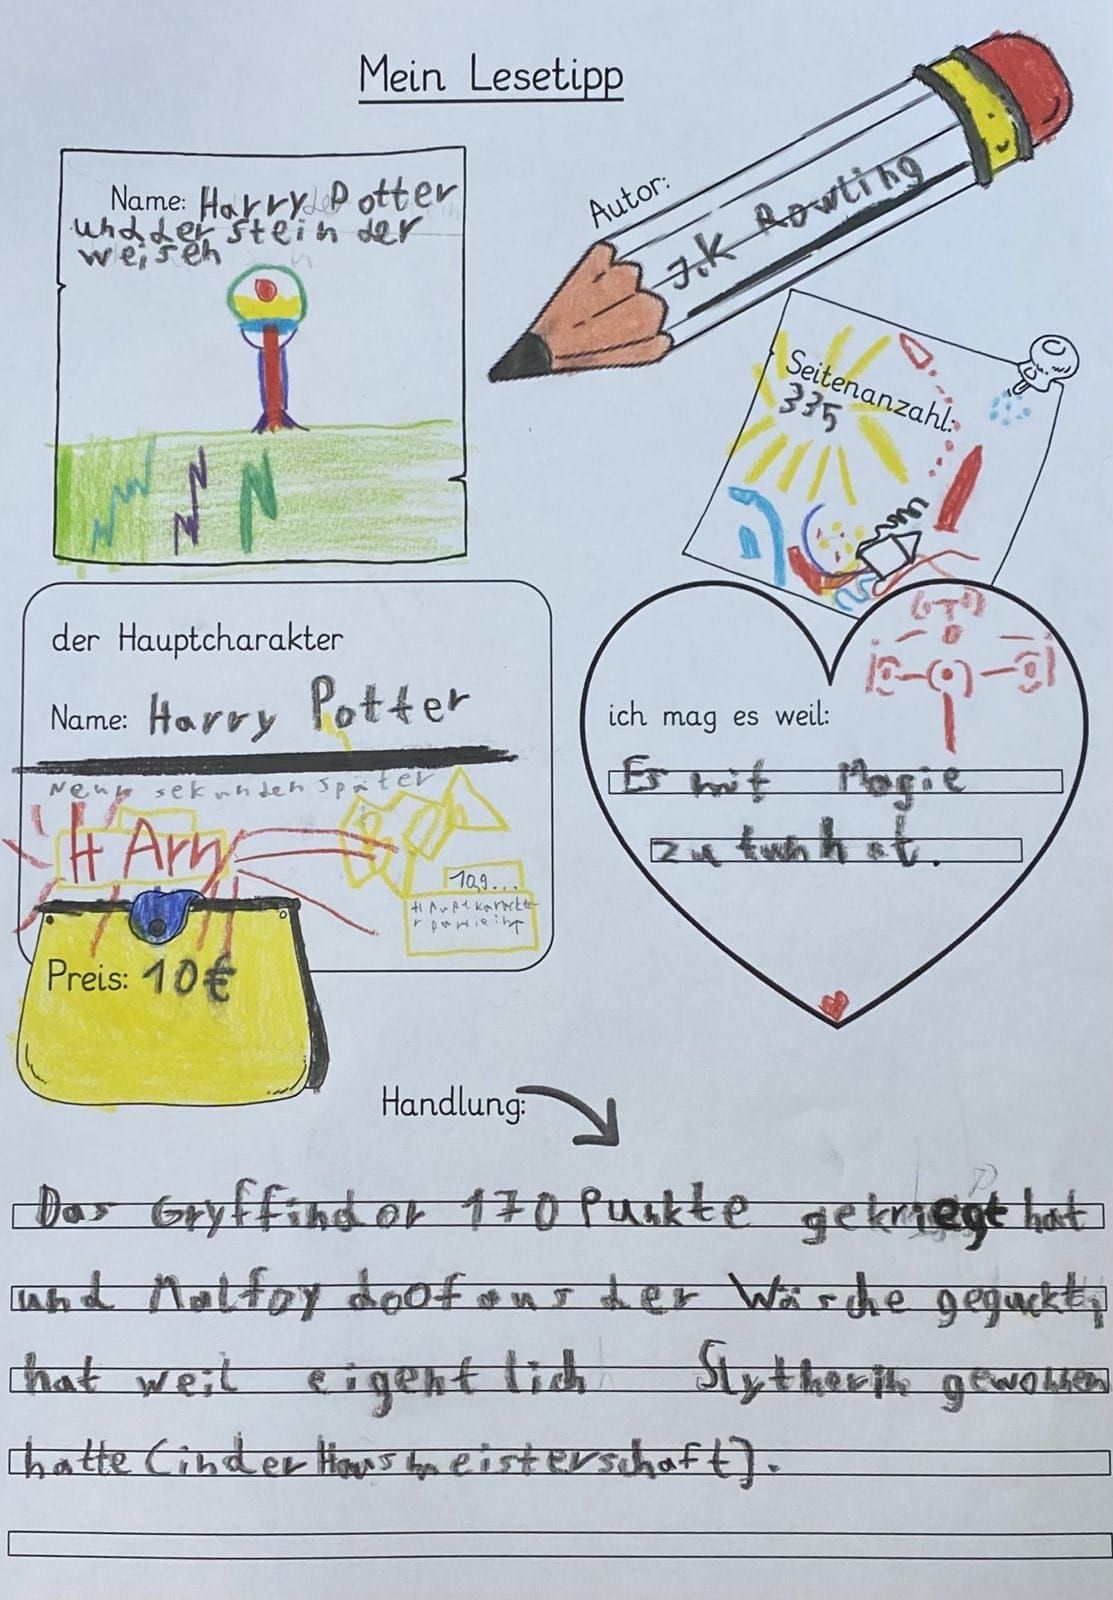 Mein Lesetipp
Name: Harry Potter
und der stein der
weisen
Autor:
J.K Rowling
Seitenanzahl:
335
der Hauptcharakter
Name: Harry Potter
Neun sekunden später
HArry
10,9...
Preis: 10€
ich mag es weil:
Es mit Magie
zu tun hat.
Handlung:
Das Gryffindor 170 Punkte gekriegt hat
und Malfoy doof aus der Wäsche geguckt
hat weil eigentlich Slytherin gewonnen
hatte (in der Hausmeisterschaft).